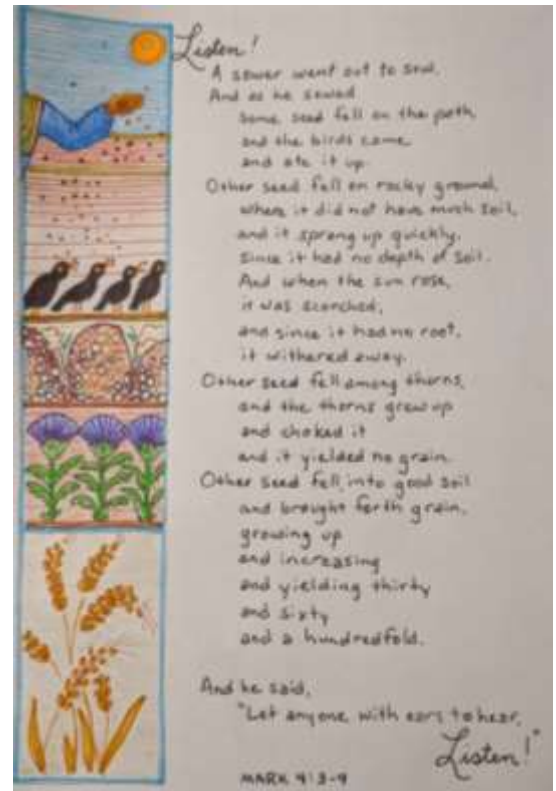 Listen!
A sower went out to sow.
And as he sowed
some seed fell on the path
and the birds came
and ate it up.
Other seed fell on rocky ground,
where it did not have much soil,
and it sprang up quickly,
since it had no depth of soil.
And when the sun rose,
it was scorched,
and since it had no root,
it withered away.
Other seed fell among thorns,
and the thorns grew up
and choked it
and it yielded no grain.
Other seed fell into good soil
and brought forth grain,
growing up
and increasing
and yielding thirty
and sixty
and a hundredfold.
And he said,
"Let anyone with ears to hear,
Listen!"
MARK 4:3-9